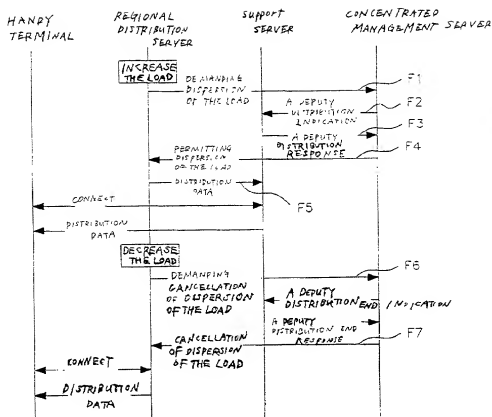 HANDY
TERMINAL
REGIONAL
DISTRIBUTION
SERVER
SUPPORT
SERVER
CONCENTRATED
MANAGEMENT SERVER
INCREASE
THE LOAD
DEMANDING
DISPERSION
OF THE LOAD
F1
A DEPUTY
DISTRIBUTION
INDICATION
F2
A DEPUTY
DISTRIBUTION
RESPONSE
F3
PERMITTING
DISPERSION
OF THE LOAD
F4
DISTRIBUTION
DATA
F5
CONNECT
DISTRIBUTION
DATA
DECREASE
THE LOAD
DEMANDING
CANCELLATION
OF DISPERSION
OF THE LOAD
F6
A DEPUTY
DISTRIBUTION END INDICATION
A DEPUTY
DISTRIBUTION END
RESPONSE
F7
CANCELLATION
OF DISPERSION
OF THE LOAD
CONNECT
DISTRIBUTION
DATA